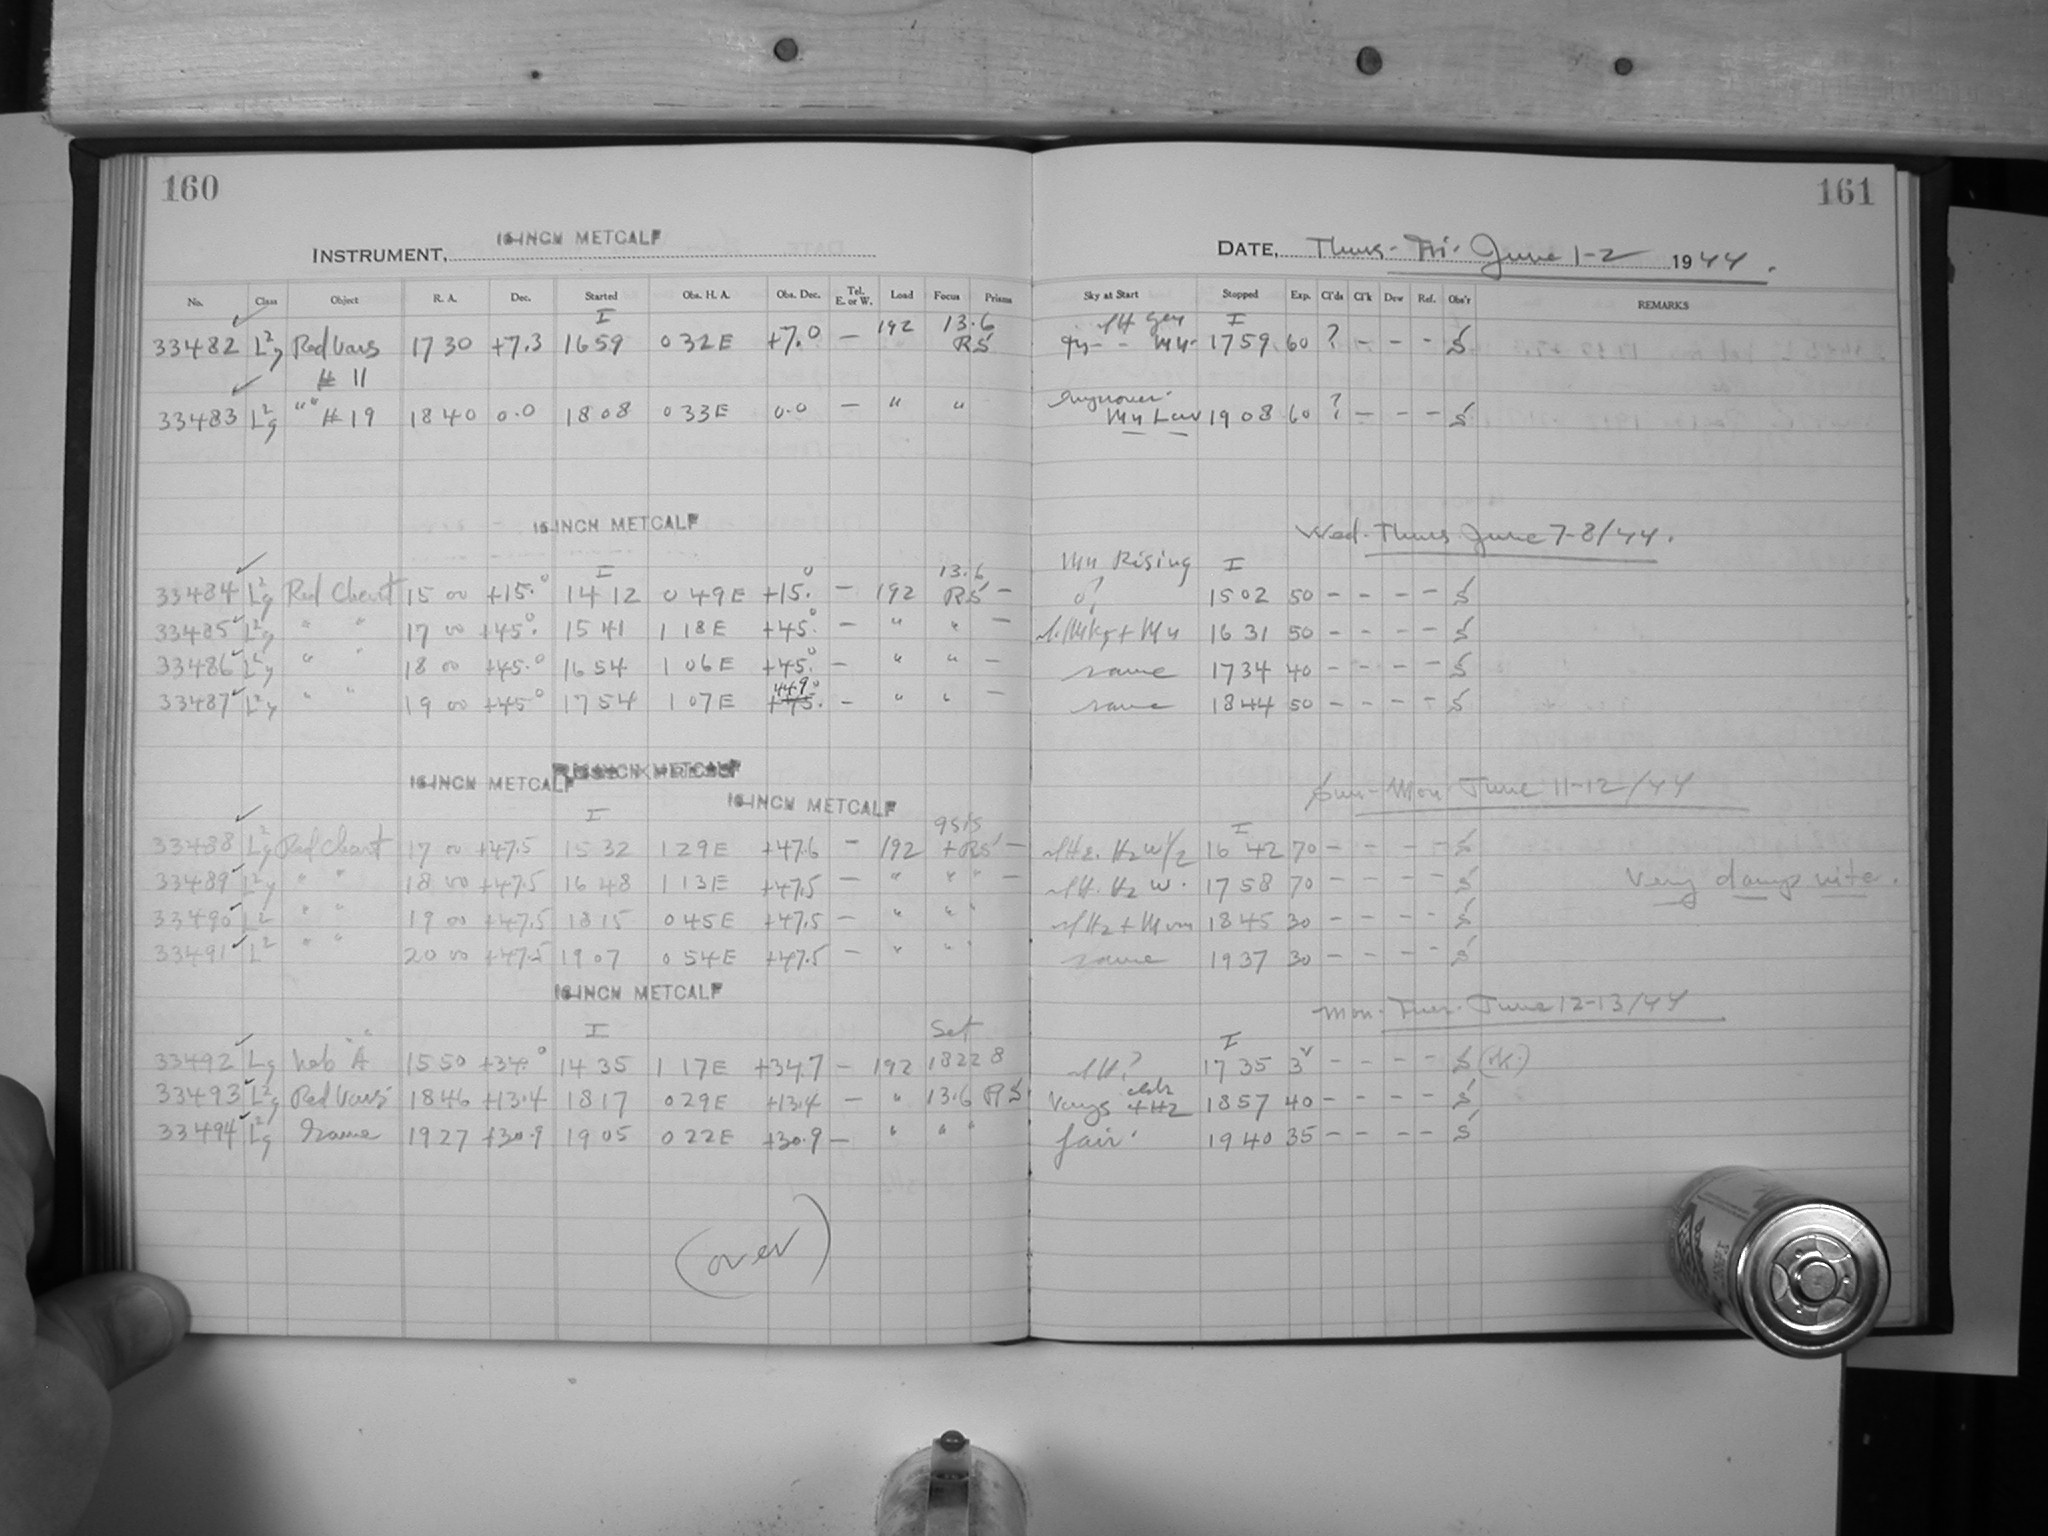 160
161
INSTRUMENT, 16-INCH METCALF
DATE, Thurs - Fri. June 1-2 1944.
No. Class Object R. A. Dec. Started Obs. H. A. Obs. Dec. Tel. E. or W. Load Focus Prisms Sky at Start Stopped Exp. Cl'ds Cl'k Dew Ref. Obs'r REMARKS
I 13.6 I
33482 Red Vars 17 30 +7.3 16 59 0 32 E +7.0 — 192 RS 17 59 60 ? - - - S
# 11
33483 " " # 19 18 40 0.0 18 08 0 33 E 0.0 — " " 19 08 60 ? - - - S
16-INCH METCALF
Wed. Thurs June 7-8/44.
I 13.6 Mn Rising I
33484 Red Chart 15 00 +15.0 14 12 0 49 E +15.0 — 192 RS — 15 02 50 - - - - S
33485 " " 17 00 +45.0 15 41 1 18 E +45.0 — " " — 16 31 50 - - - - S
33486 " " 18 00 +45.0 16 54 1 06 E +45.0 — " " — same 17 34 40 - - - - S
33487 " " 19 00 +45.0 17 54 1 07 E 44.9 — " " — same 18 44 50 - - - - S
16-INCH METCALF
16-INCH METCALF
Sun - Mon June 11-12/44
I I
33488 Red Chart 17 00 +47.5 15 32 1 29 E +47.6 — 192 + RS — 16 42 70 - - - - S
33489 " " 18 00 +47.5 16 48 1 13 E +47.5 — " " " — 17 58 70 - - - - S Very damp nite.
33490 L2 " " 19 00 +47.5 18 15 0 45 E +47.5 — " " " 18 45 30 - - - - S
33491 L2 " " 20 00 +47.5 19 07 0 54 E +47.5 — " " " same 19 37 30 - - - - S
16-INCH METCALF
Mon. Tues. June 12-13/44
I Set I
33492 "A" 15 50 +34.0 14 35 1 17 E +34.7 — 192 1822 8 17 35 - - - - S
33493 Red Vars 18 46 +13.4 18 17 0 29 E +13.4 — " 13.6 RS 18 57 40 - - - - S
33494 Same 19 27 +30.9 19 05 0 22 E +30.9 — " " " fair 19 40 35 - - - - S
(over)